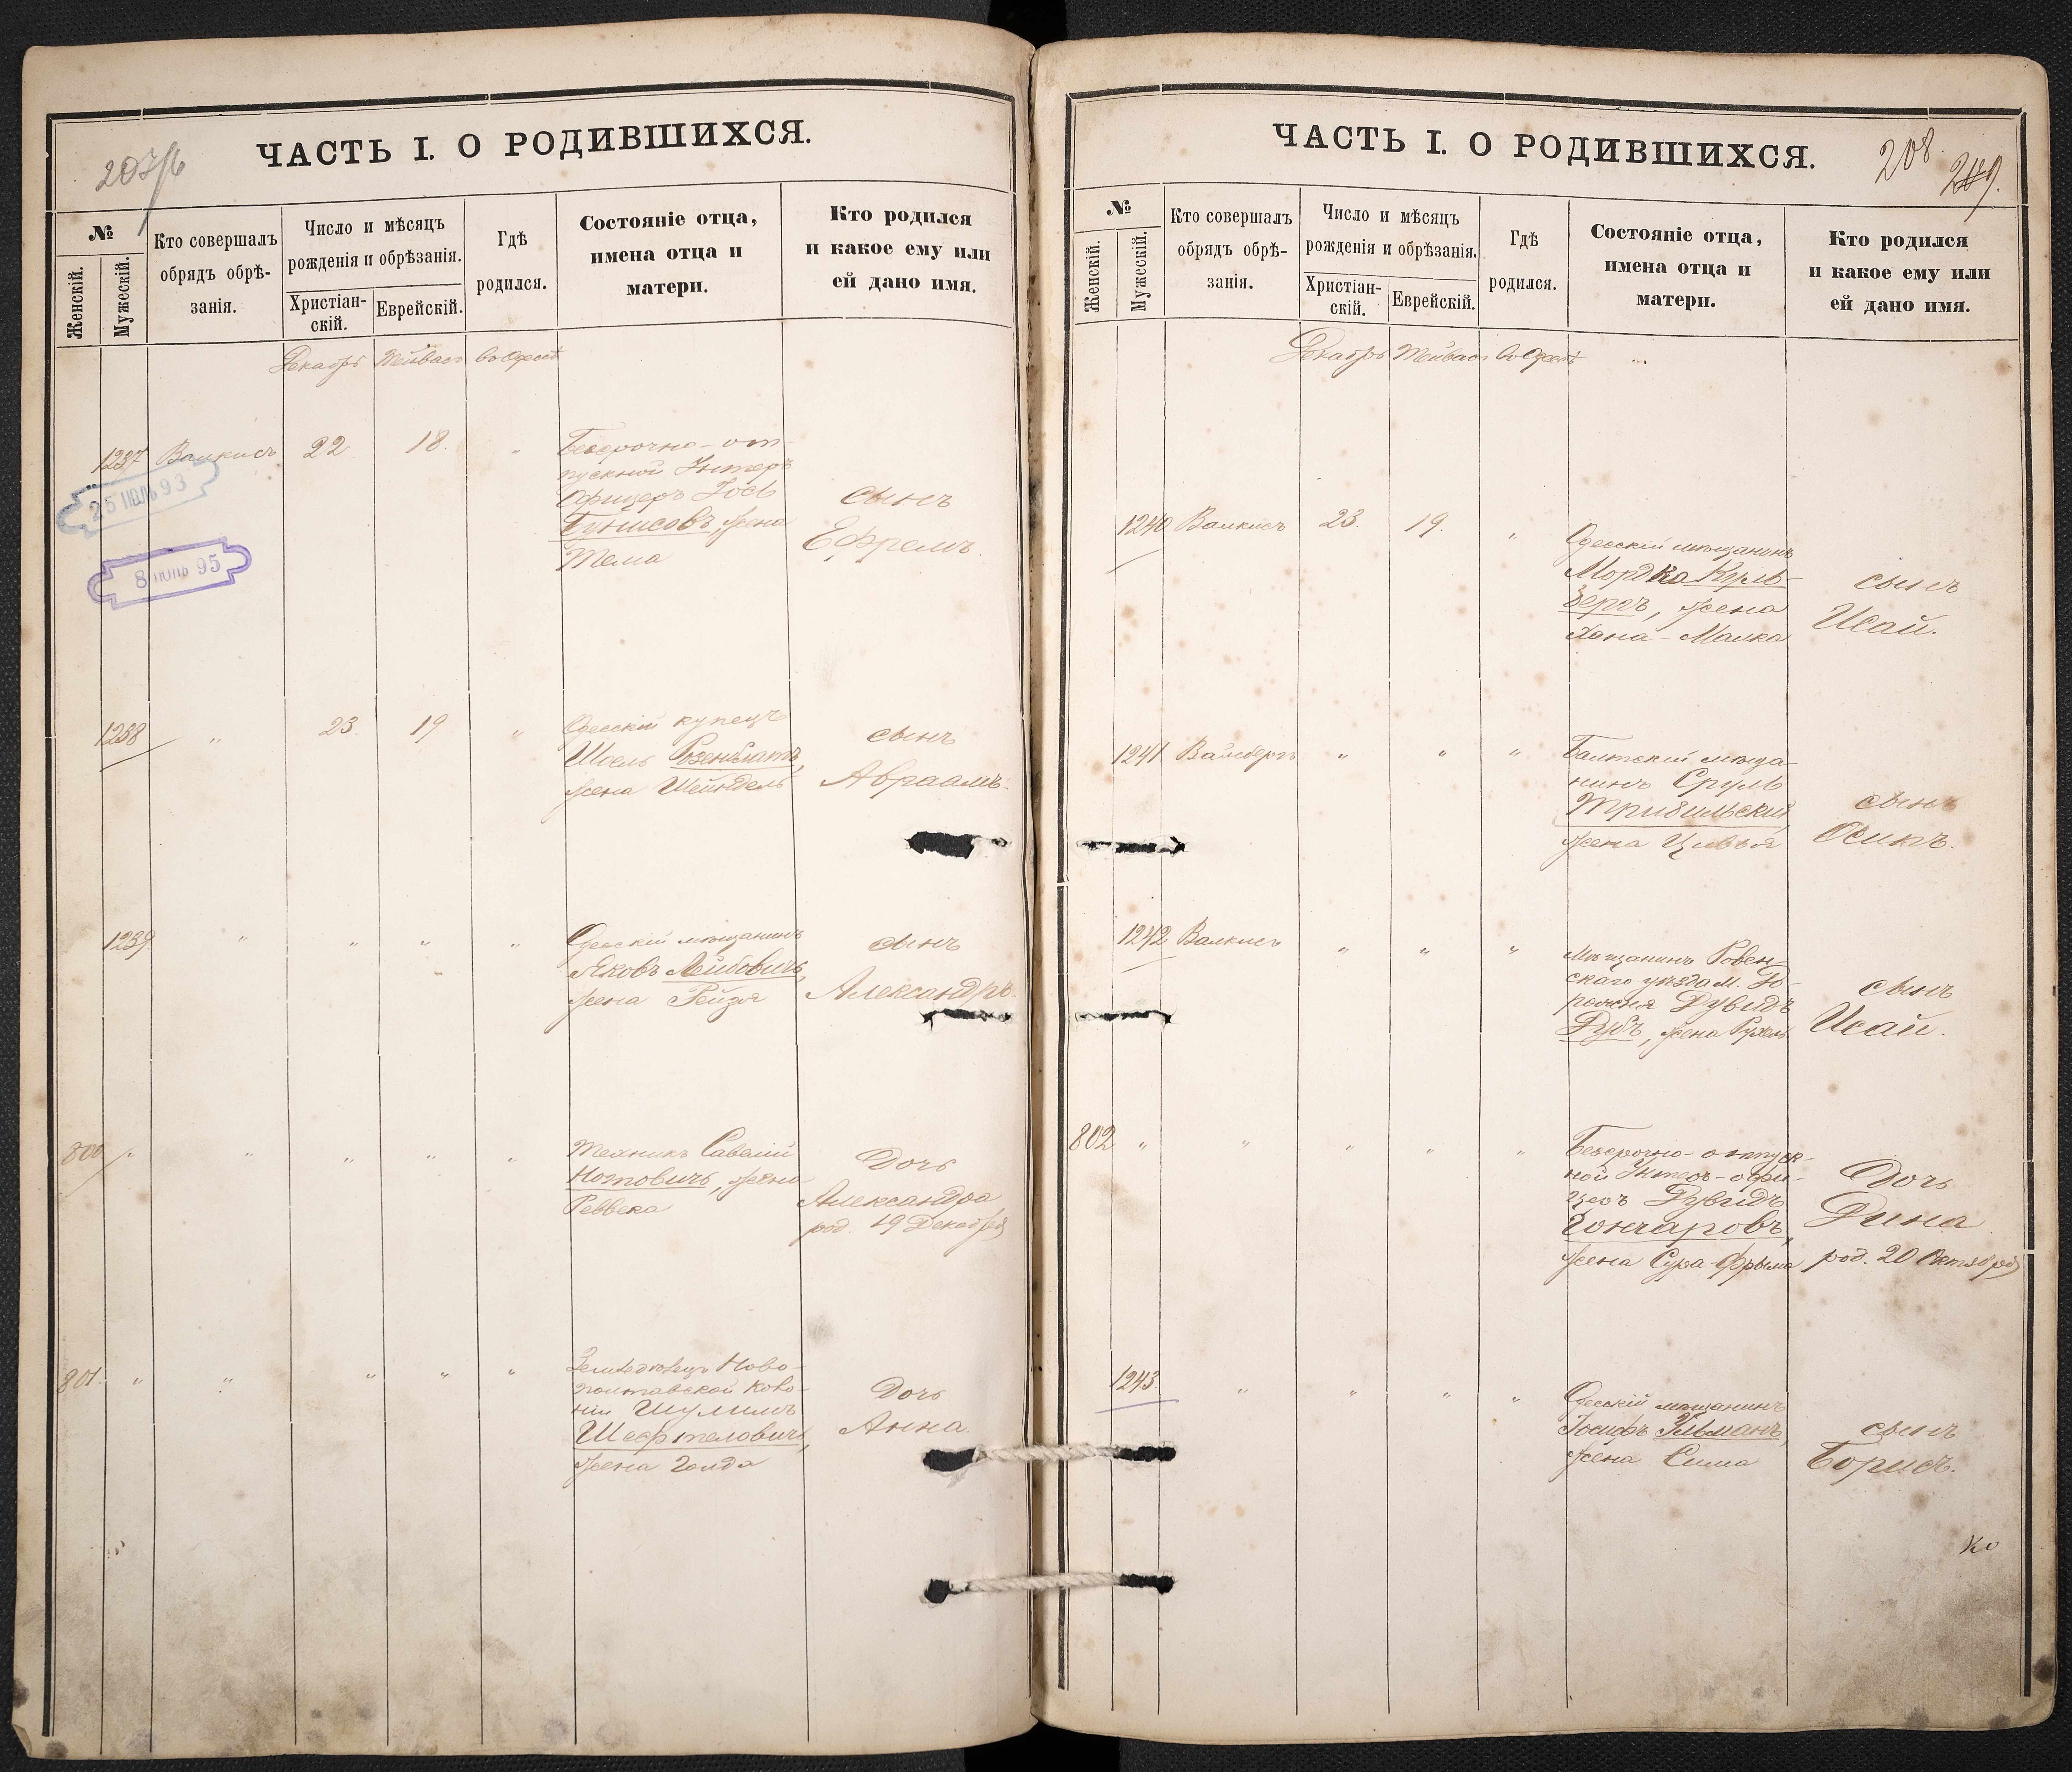 ЧАСТЬ I. О РОДИВШИХСЯ.
№
Женскій.
Мужескій.
Кто совершалъ
обрядъ обрѣ-
занія.
Число и мѣсяцъ
рожденія и обрѣзанія.
Христіан-
скій.
Еврейскій.
Гдѣ
родился.
Состояніе отца,
имена отца и
матери.
Кто родился
и какое ему или
ей дано имя.
Декабрь Тейвасъ въ Одессѣ
1237 Валкисъ 22 18. "
Безсрочно-от-
пускной Унтеръ
Офицеръ Іось
жена
Тема
сынъ
Ефремъ.
25 ІЮЛЬ 93
8 95
1238 " 23. 19 "
Одесскій купецъ
Шоель Розенблатъ,
жена Шейндель
сынъ
Авраамъ.
1239 " " " "
Одесскій мѣщанинъ
Яковъ Лейбовичъ,
жена Рейзя
сынъ
Александръ.
800 " " " " "
Техникъ Савелій
Нотовичъ, жена
Реввека
Дочь
Александра
род. 19 Декабря
801. " " " " "
Земледѣлецъ Ново-
полтавской Коло-
ніи Шулимъ
жена Голда
Дочь
Анна.
ЧАСТЬ I. О РОДИВШИХСЯ.
208.
209.
№
Женскій.
Мужескій.
Кто совершалъ
обрядъ обрѣ-
занія.
Число и мѣсяцъ
рожденія и обрѣзанія.
Христіан-
скій.
Еврейскій.
Гдѣ
родился.
Состояніе отца,
имена отца и
матери.
Кто родился
и какое ему или
ей дано имя.
Декабрь Тейвасъ въ Одессѣ "
1240 Валкисъ 23. 19. "
Одесскій мѣщанинъ
Мордка Куль-
бергъ, жена
Хана-Малка
сынъ
Исай.
1241 Вайсбергъ " " "
Балтскій мѣща-
нинъ Сруль
жена Цивья
сынъ
Осипъ.
1242 Валкисъ " " "
Мѣщанинъ Ровен-
скаго уѣзда м.
Дувидъ
Дубъ, жена Рухель
сынъ
Исай.
802 " " " " "
Безсрочно-отпуск-
ной Унтеръ-офи-
церъ Дувидъ
Гончаровъ,
жена Сура-Фрыма
Дочь
Дина
род. 20 Октября
1243 " " " "
Одесскій мѣщанинъ
Іосифъ Ульманъ,
жена Сима
сынъ
Борисъ.